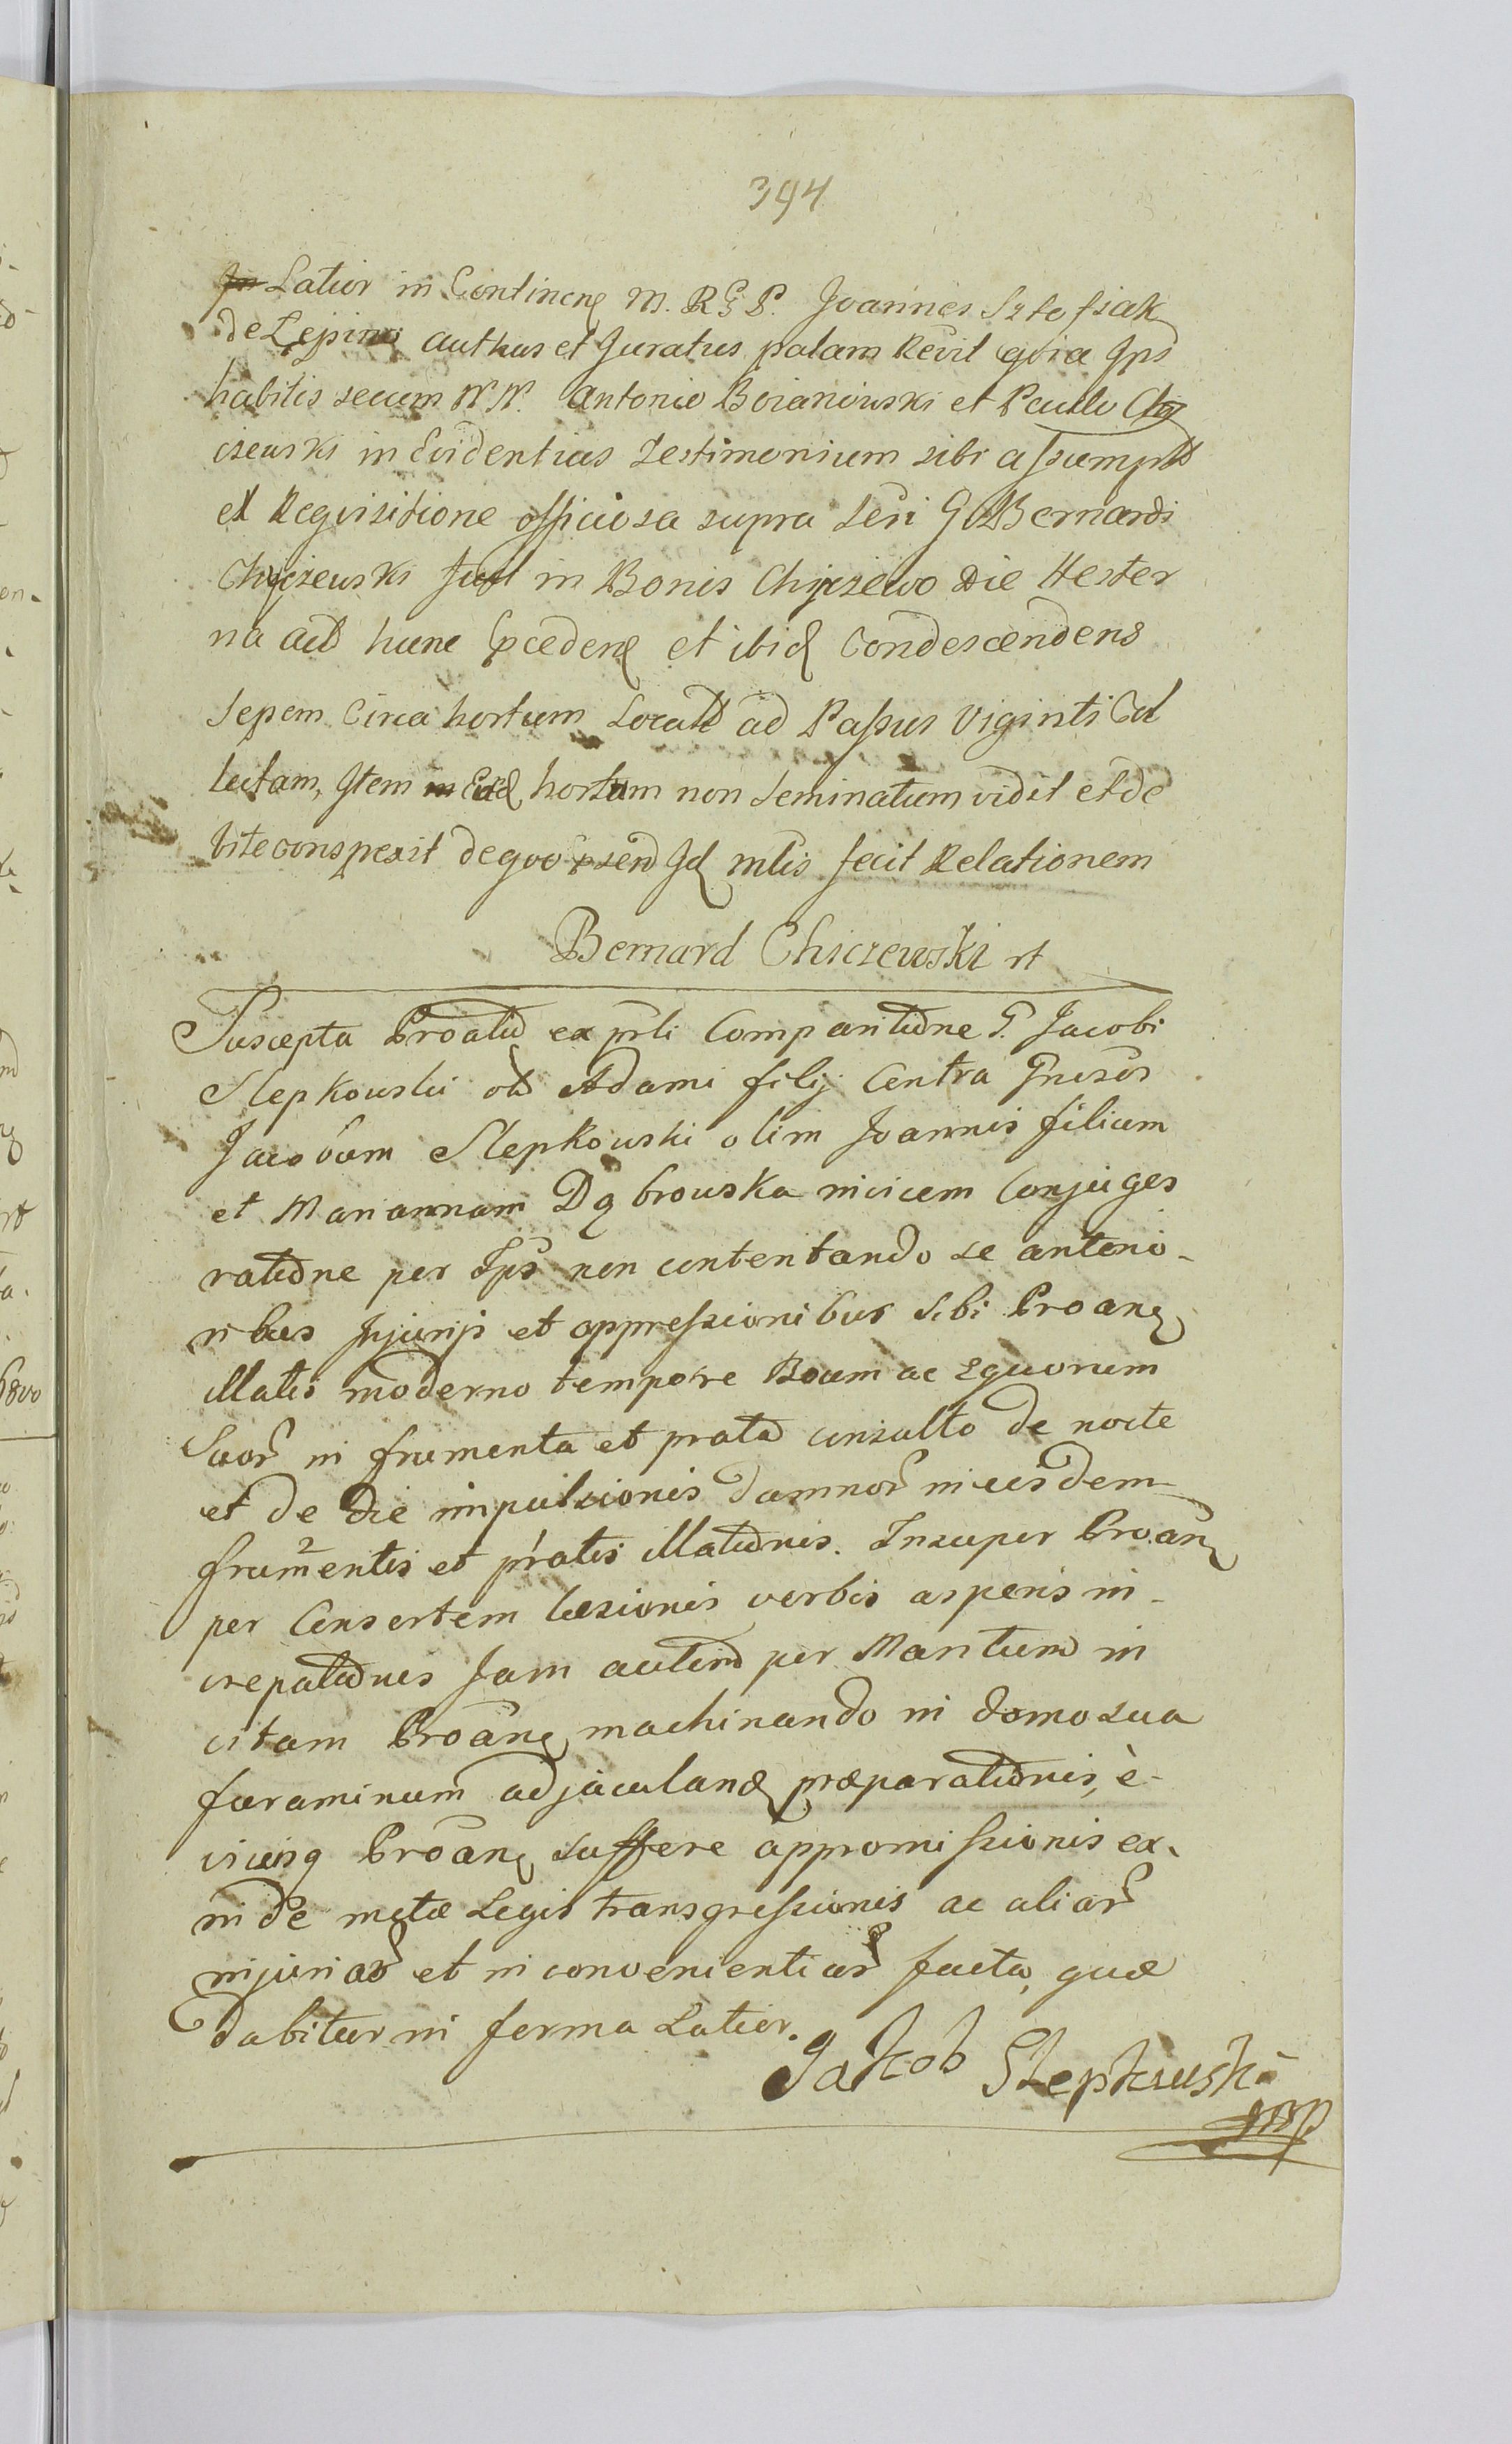 394
Latior in Continen M. R. G. P. Joannes Sztofsiak
de Lepino authus et Juratus palam Revit quia Ips
habitis secum N. N. Antonio Boianowski et Paulo Chy
czewski in Evidentius Testimonium sibi assumpts
et Requisitione officiosa supra seri G Bernardi
Chyczewski fuit in Bonis Chyczewo Die Hester
na act hunc pceden et ibid Condescendens
Sepem Circa hortum Locatd ad Passus Viginti Col
lectam, Item Eund hortum non Seminatum vidit et de
bite conspexit de quo psend Id mlis fecit Relationem
Bernard Chiczewski rt
Suscepta Proatio ex prli Comparitione G. Jacobi
Slepkowski ol Adami filij Contra Gnesos
Jacobum Slepkowski olim Joannis filium
et Mariannam Dąbrouska invicem Conjuges
ratione per Ips non contentando se anterio-
ribus Injurijs et oppressionibus sibi Proan
illatis moderno tempore Boum ac Equorum
Suor in frumenta et prata consulto de nocte
et de Die impulsionis damnor in eisdem
frumentis et pratis illationis. Insuper Proan
per Consortem læsionis verbis asperis in-
crepationes Jam autem per Maritum in
vitam Proan machinando in domo sua
foraminum ad jaculand præparationis, è-
vicisq Proan suffere appromissionis ex-
inde metæ Legis transgressionis ac aliar
injuriar et inconvenientiar facta, quæ
Dabitur in forma Latior.
Jakob Slepkuski
mp